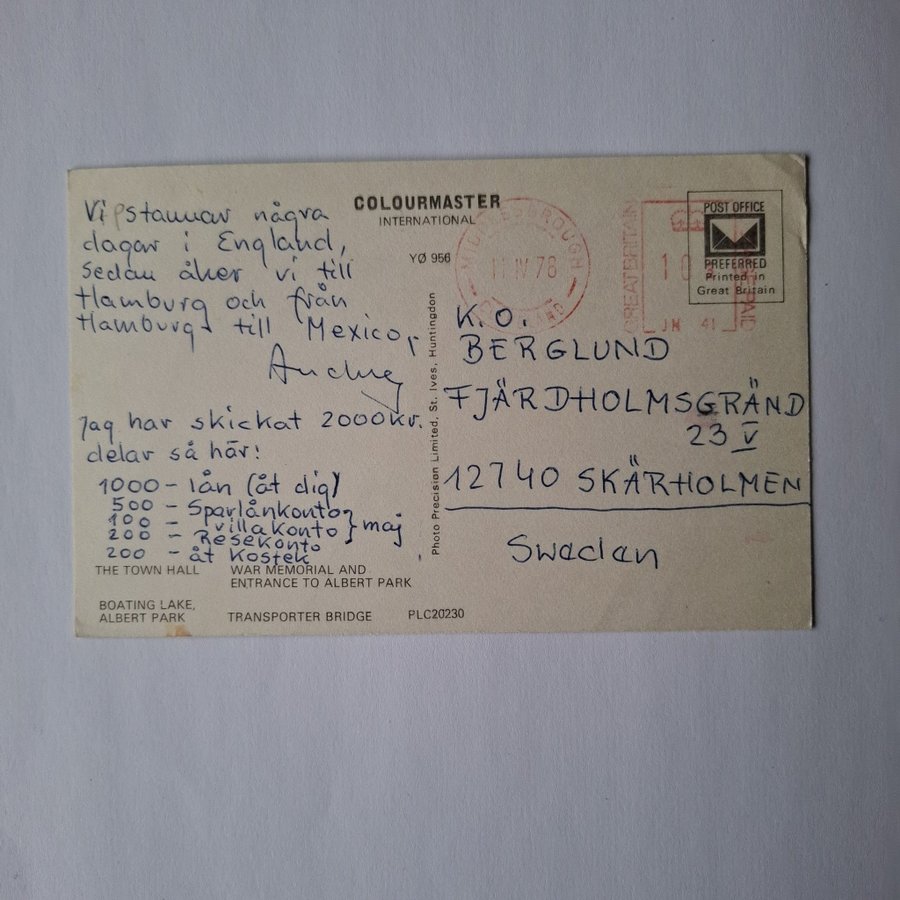 COLOURMASTER
INTERNATIONAL
YØ 956
Vi stannar några
dagar i England,
Sedan åker vi till
Hamburg och från
Hamburg till Mexico,
Jag har skickat 2000 kr.
delar så här:
1000 - lån (åt dig)
500 - Sparlånkonto
100 - villakonto } maj
200 - Resekonto
200 - åt Kostek
THE TOWN HALL
WAR MEMORIAL AND
ENTRANCE TO ALBERT PARK
BOATING LAKE,
ALBERT PARK
TRANSPORTER BRIDGE
PLC20230
Photo Precision Limited, St. Ives, Huntingdon
MIDDLESBROUGH
11 IV 78
GREAT BRITAIN
POST OFFICE
PREFERRED
Printed in
Great Britain
K.O.
BERGLUND
FJÄRDHOLMSGRÄND
23 V
12740 SKÄRHOLMEN
Sweden